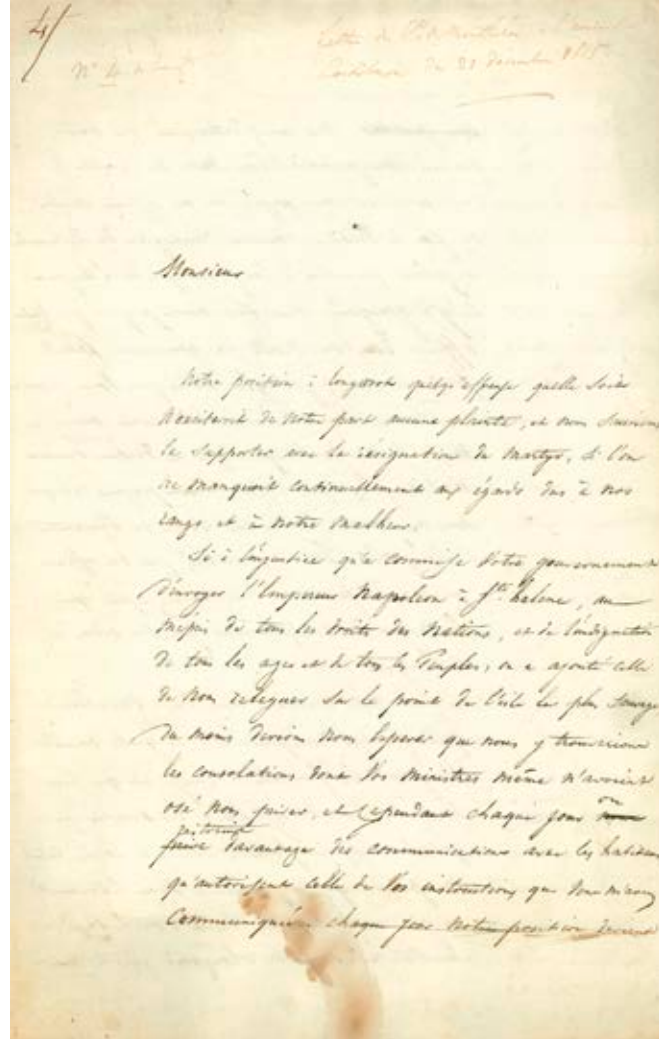 4/
N° 4
Lettre de à l'amiral
du 21 décembre 1815
Monsieur
Notre position à longwood quelqu'affreuse quelle soit
n'exciteroit de notre part aucune plainte, et nous
la supporter avec la résignation de martyr, si l'on
ne manquoit continuellement aux égards dus à nos
rangs, et à notre malheur.
Si à l'injustice qu'a commise votre gouvernement
d'envoyer l'Empereur Napoléon à Ste. helene, au
mepris de tous les droits des Nations, et de l'indignation
de tous les ages et de tous les Peuples, on a ajouté celle
de nous releguer sur le point de l'isle le plus sauvage
du moins devions nous esperer que nous y trouverions
les consolations dont vos ministres même n'avoient
osé nous priver, et cependant chaque jour on
restreint
davantage les communications avec les habitans
qu'autorisent celle de vos instructions que vous m'avez
Communiquées chaque jour Notre position devient